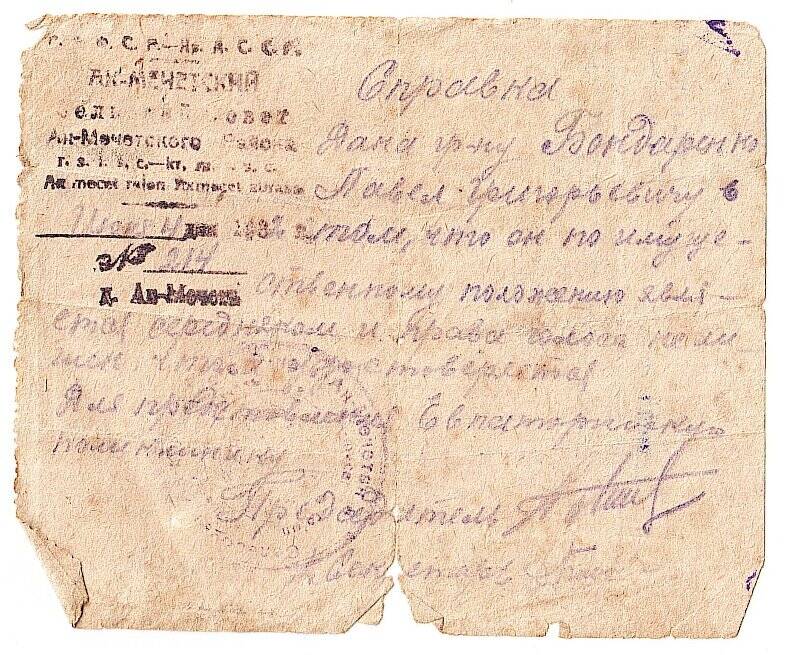 Р. С. Ф. С. Р.—Кр. А. С. С. Р.
АК-МЕЧЕТСКИЙ
СЕЛЬСКИЙ СОВЕТ
Ак-Мечетского Района
r. s. f. s. c.—kr. m. s. s. c.
Ак mecet raion
4 дня 193
№ 214
д. Ак-Мечеть
Справка
Дана гр-ну Бондаренко
Павел Григорьевичу в
том, что он по имуще-
ственному положению явля-
ется середняком и права голоса не ли-
шен что и удостоверяется
Для представления Евпаторийскую
поликлинику
Председатель
Секретарь